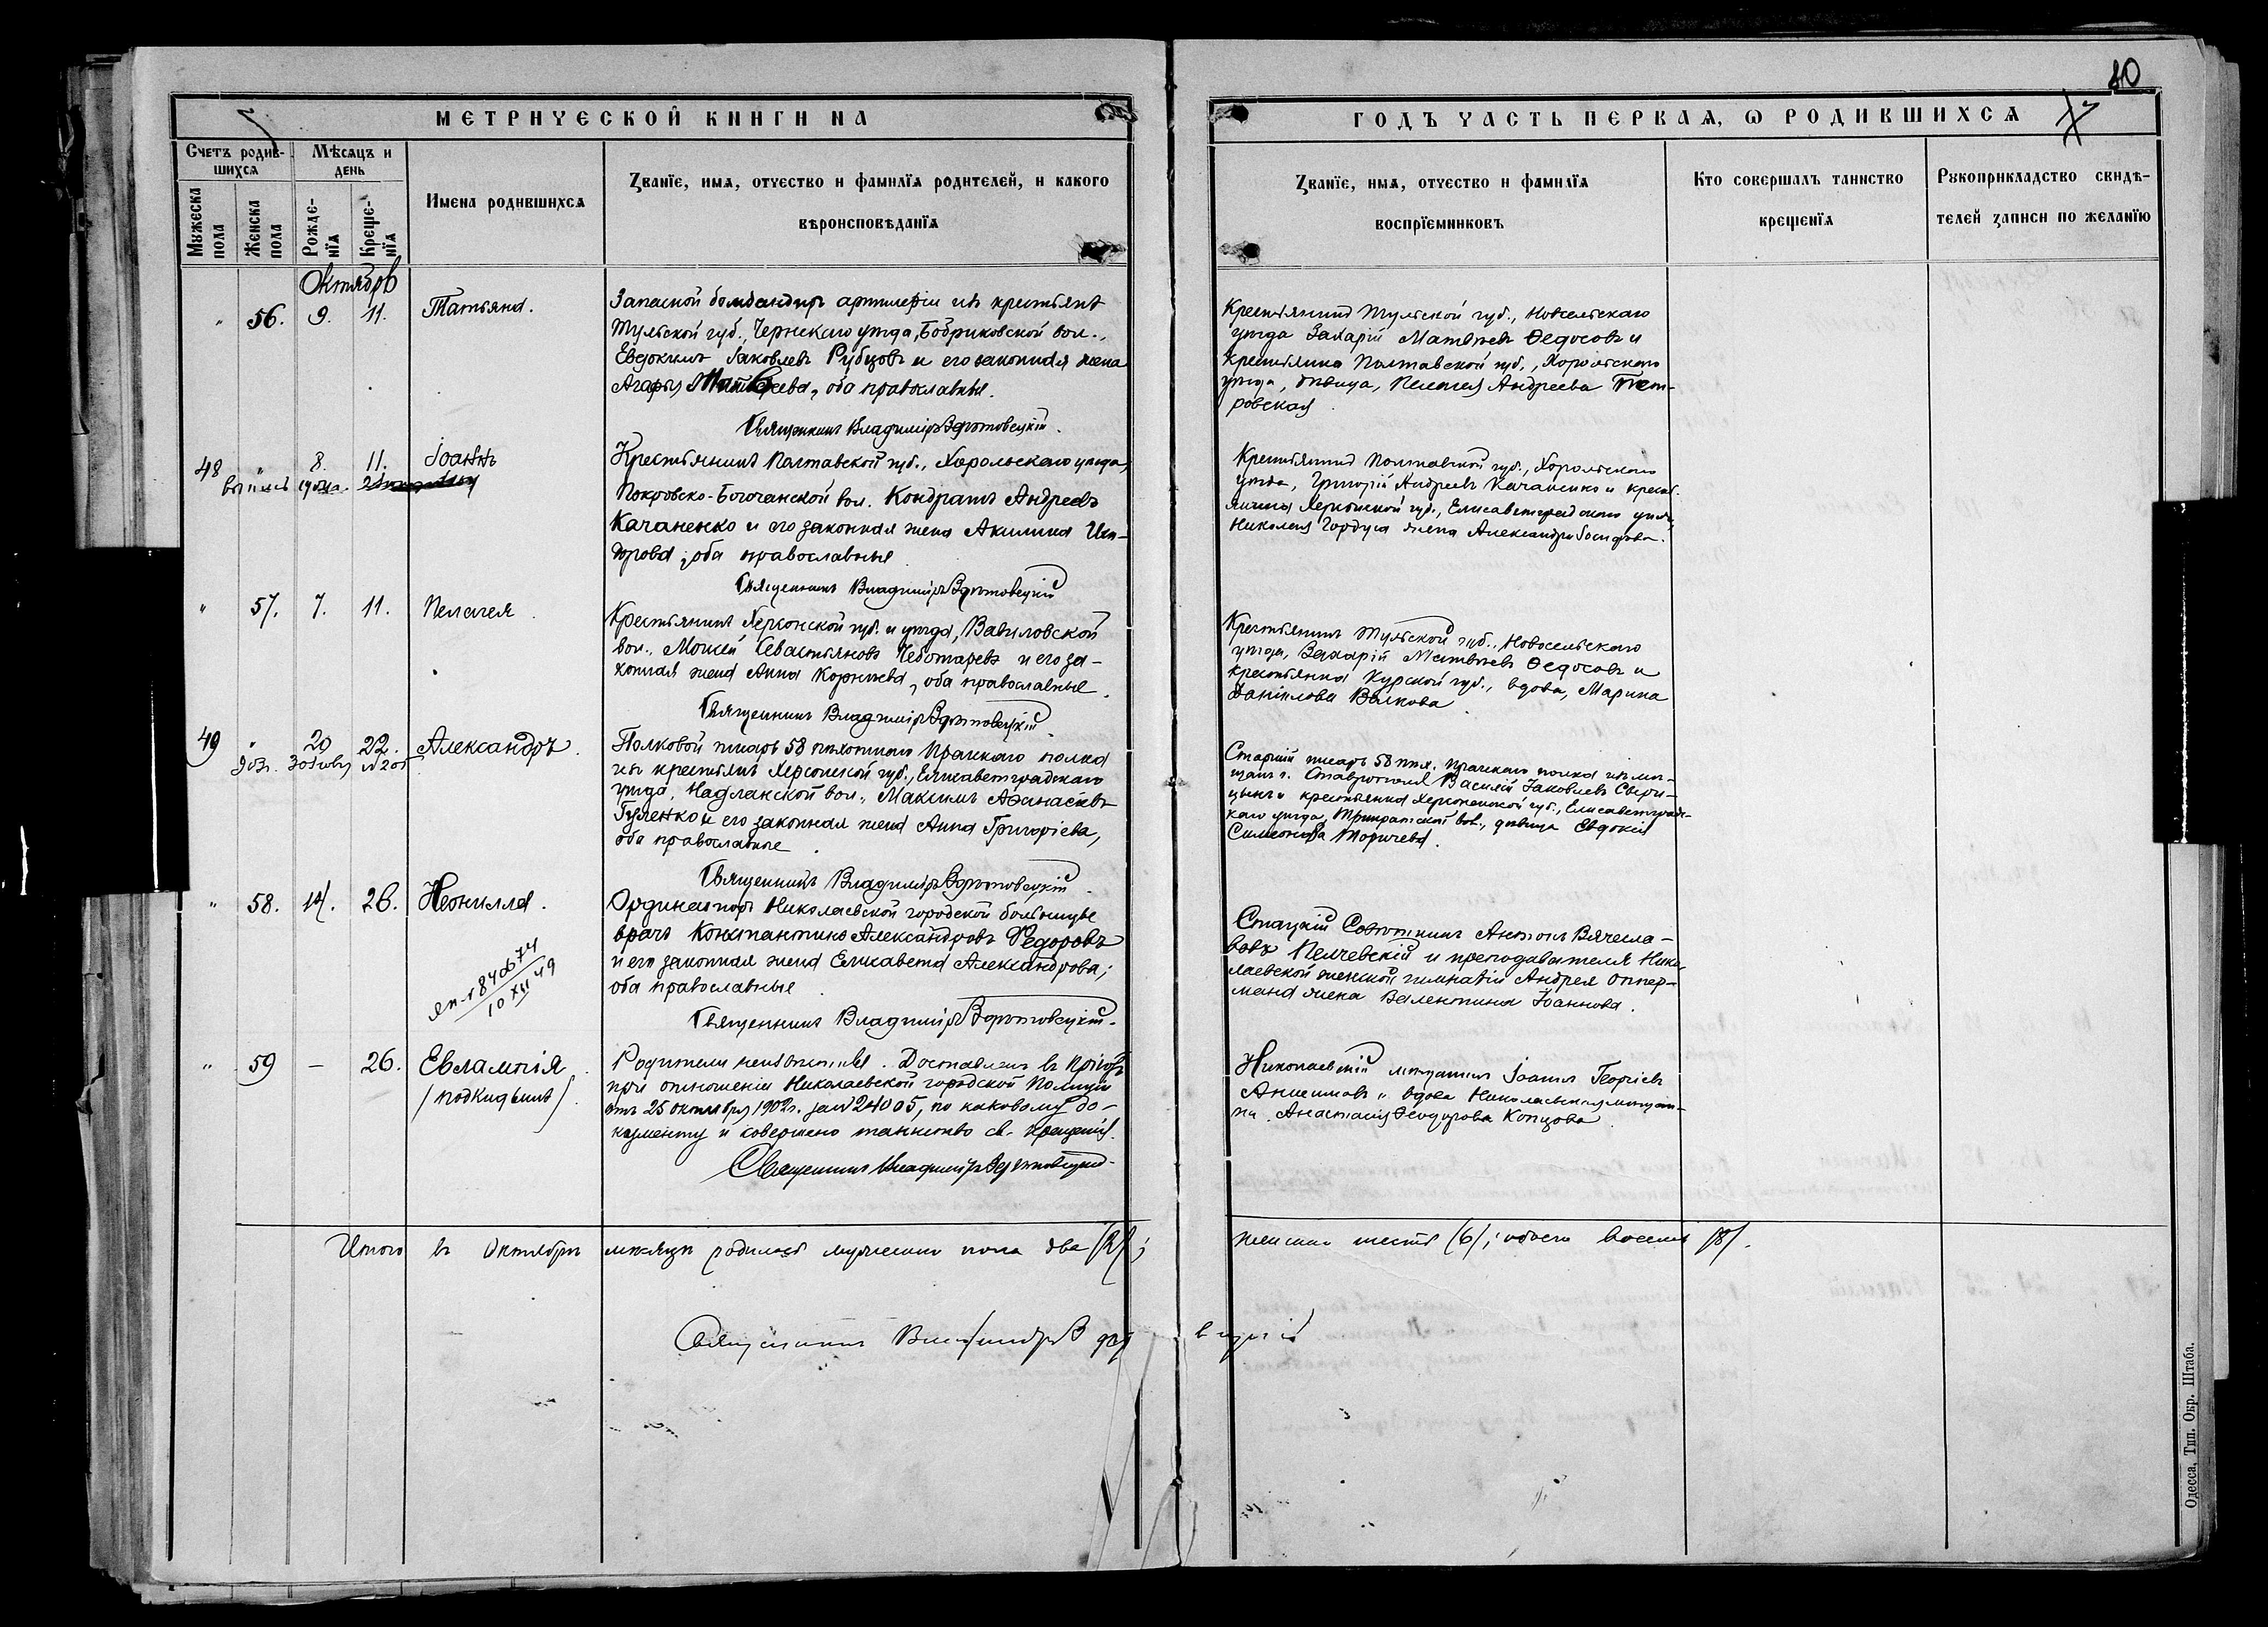 80
МЕТРИЧЕСКОЙ КНИГИ НА
ГОДЪ ЧАСТЬ ПЕРВАЯ, Ѡ РОДИВШИХСЯ
Счетъ родив-
шихся
Мѣсяцъ и
день
Мужеска
пола
Женска
пола
Рожде-
нїя
Креще-
нїя
Имена родившихся
Званїе, имя, отчество и фамилїя родителей, и какого
вѣроисповѣданїя
Званїе, имя, отчество и фамилїя
воспрїемниковъ
Кто совершалъ таинство
крещенїя
Рукоприкладство свидѣ-
телей записи по желанїю
Октябрь
" 56. 9. 11. Татьяна.
Запасной бомбандиръ артилеріи изъ крестьянъ
Тульской губ., Чернскаго уѣзда, Бобриковской вол.,
Евдокимъ Іаковлевъ Рубцовъ и его законная жена
Агафія Матвѣева, оба православные.
Священникъ Владиміръ
Крестьянинъ Тульской губ., Новосельскаго
уѣзда Захарій Матвѣевъ Ѳедосовъ и
крестьянка Полтавской губ., Хорольскаго
уѣзда, дѣвица, Пелагея Андреева Пет-
ровская
48 " 8. 11. Іоаннъ
Крестьянинъ Полтавской губ., Хорольскаго уѣзда,
Покровско-Богачанской вол. Кондратъ Андреевъ
Качаненко и его законная жена Акилина
оба православные
Священникъ Владиміръ
Крестьянинъ Полтавской губ., Хорольскаго
уѣзда, Григорій Андреевъ Качаненко и крест-
янина Херсонской губ., Елисаветградскаго уѣзда,
Николая Гордуса жена Александра Іосифова.
" 57. 7. 11. Пелагея.
Крестьянинъ Херсонской губ. и уѣзда, Вавиловской
вол., Моисей Севастьяновъ Чеботаревъ и его за-
конная жена Анна Корнѣева, оба православные.
Священникъ Владиміръ
Крестьянинъ Тульской губ., Новосельскаго
уѣзда, Захарій Матвѣевъ Ѳедосовъ и
крестьянка Курской губ., вдова, Марина
Даніилова Волкова
49 " 20 22. Александръ.
Полковой писарь 58 пѣхотнаго Прагскаго полка
изъ крестьянъ Херсонской губ., Елисаветградскаго
уѣзда, Надлакской вол., Максимъ Аѳанасіевъ
Гуленко и его законная жена Анна Григорієва,
оба православные
Священникъ Владиміръ
Старшій писарь 58 пѣх. Прагскаго полка изъ мѣ-
щанъ г. Ставрополя Василій Іаковлевъ
и крестьянка Херсонской губ., Елисаветград-
скаго уѣзда, Трикратской вол., дѣвица Евдокія
Симеонова
" 58. 14. 26. Неонилла.
10 XII 49
Ординаторъ Николаевской городской больницы
врачъ Константинъ Александровъ Ѳедоровъ
и его законная жена Елисавета Александрова;
оба православные
Священникъ Владиміръ
Статскій Совѣтникъ Антонъ Вячесла-
вовъ Пелчевскій и преподавателя Нико-
лаевской женской гимназіи Андрея Оппер-
мана жена Валентина Іоаннова.
" 59 — 26. Евлампія
/подкидышъ/.
Родители неизвѣстны. Доставленъ въ
при отношеніи Николаевской городской Полиціи
отъ 25 октября 1902 г. за № 24005, по каковому до-
кументу и совершено таинство св. крещенія.
Священникъ Владиміръ
Николаевскій мѣщанинъ Іоаннъ Георгіевъ
Анисимовъ и вдова Николаевская мѣщан-
ка Анастасія Ѳеодорова Копцова
Итого въ Октябрѣ мѣсяцѣ родилось мужескаго пола два /2/; женскаго шесть /6/; обоего восемь /8/.
Священникъ
Одесса, Тип. Окр. Штаба.